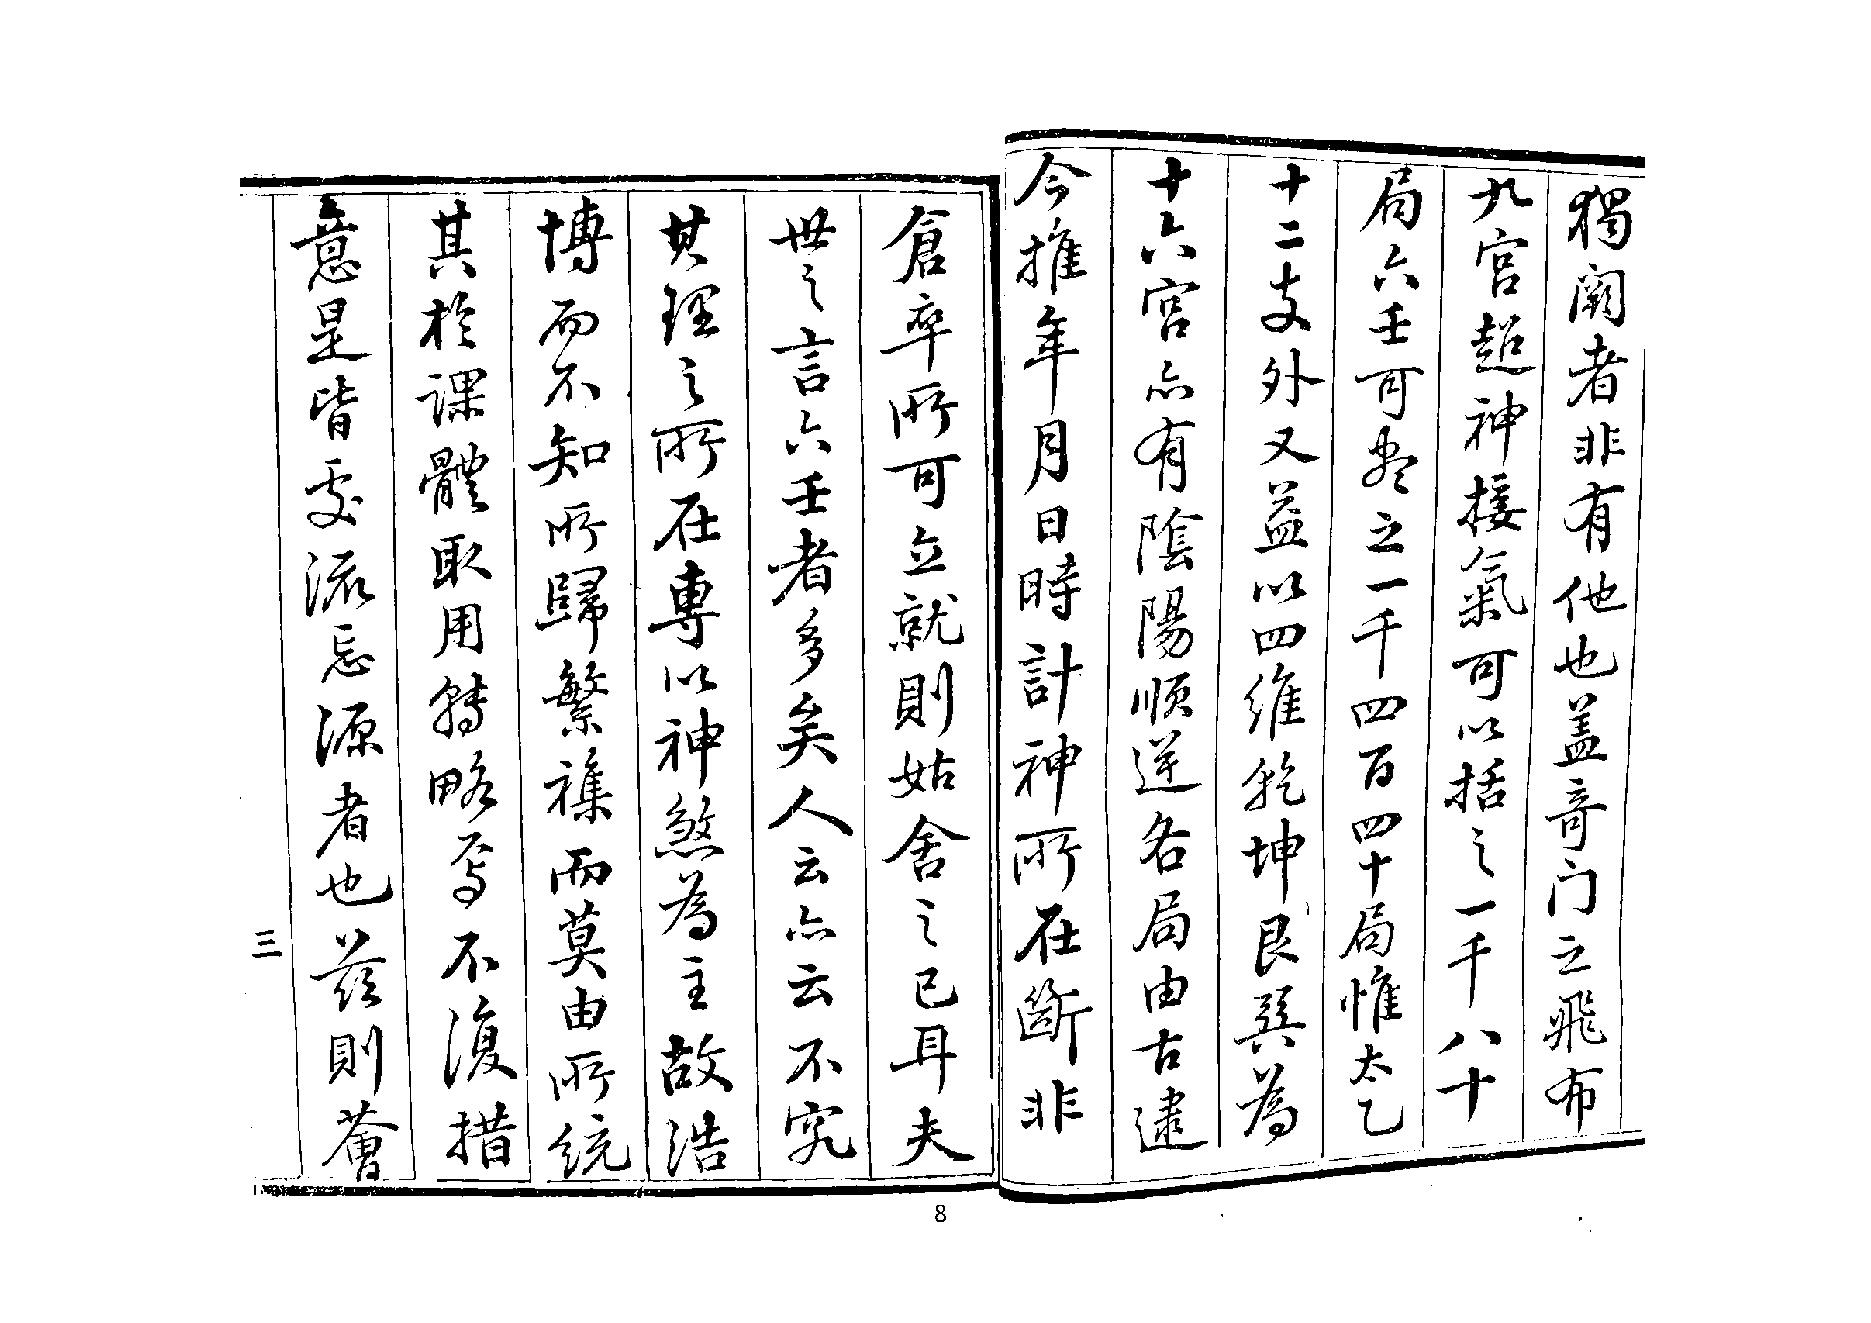 獨闕者非有他也盖竒门之飛布
九宫超神接氣可以括之一千八十
局六壬可尽之一千四百四十局惟太乙
十二支外又益以四维乾坤艮巽為
十六宫亦有陰陽順逆各局由古逮
今推年月日時計神所在斷非
倉卒所可立就則姑舍之已耳夫
世之言六壬者多矣人云亦云不究
其理之所在專以神煞為主故浩
博而不知所歸繁襍而莫由所统
其於課體取用轉略焉不復措
意是皆逐流忘源者也兹則薈
三
8